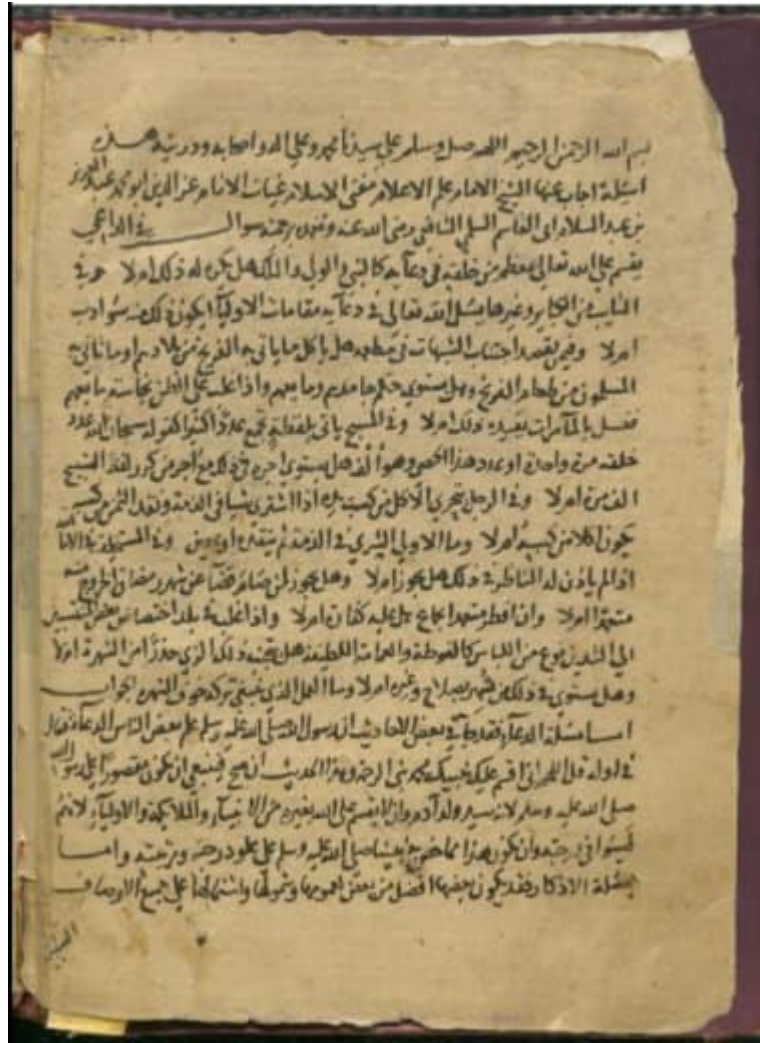 بسم الله الرحمن الرحيم اللهم صل وسلم على سيدنا محمد وعلى اله واصحابه وذريته هذه
اسئلة اجاب عنها الشيخ الامام علم الاعلام مفتي الاسلام غياث الانام عز الدين ابو محمد عبد العزيز
بن عبد السلام ابن ابي القاسم السلمي الشافعي رضي الله عنه ونفعنا سوال في الداعي
يقسم على الله تعالى بمعظم من خلقه في دعائه كالنبي والولي والملك هل يكره له ذلك ام لا
التايب من الكباير وغيرها يسئل الله تعالى في دعائه مقامات الاوليا ايكون ذلك منه سو ادب
ام لا وفيمن يقصد اجتناب الشبهات في مطعمه هل ياكل ما ياتي به الفرنج من بلادهم او ما ياتي به
المسلمون من طعام الفرنج وهل يستوي حكم جامدهم ومايعهم واذا غلب على الظن نجاسة مايعهم
ذلك ام لا وفي المسبح ياتي بلفظة تجمع عددا كثيرا كقوله سبحان الله عدد
خلقه مرة واحدة او عدد هذا الحصى وهو الف هل يستوي اجره في ذلك مع اجر من كرر لفظ التسبيح
الف مرة ام لا وفي الرجل يتحرى الاكل من كسب يده اذا اشترى شيا في الذمة ونقد الثمن من كسبه
يكون اكلا من كسبه ام لا وما الاولى الشرى في الذمة
اذا لم ياذن له الناظر في ذلك هل يجوز ام لا وهل يجوز لمن صام قضا عن شهر رمضان الخروج منه
متعمدا ام لا وان افطر متعمدا بجماع هل عليه كفارة ام لا واذا غلب في بلد اختصاص بعض المنتسبين
الى الدين بنوع من اللباس كالفوطة والعمامة اللطيفة هل تجنب ذلك حذرا من الشهرة ام لا
وهل يستوي في ذلك من شهر بصلاح وغيره ام لا وما العمل الذي ينبغي تركه خوف الشهرة الجواب
اما مسئلة الدعاء فقد جا في بعض الاحاديث ان رسول الله صلى الله عليه وسلم علم بعض الناس الدعاء فقال
في اوله قل اللهم اني اقسم عليك بنبيك محمد نبي الرحمة وهذا الحديث ان صح فينبغي ان يكون مقصورا على رسول الله
صلى الله عليه وسلم لانه سيد ولد آدم وان لا يقسم على الله بغيره من الانبياء والملائكة والاولياء لانهم
ليسوا في درجته وان يكون هذا مما خص به نبينا صلى الله عليه وسلم على علو درجته ومرتبته واما
مسئلة الاذكار فقد يكون بعضها افضل من بعض لعمومها وشمولها واشتمالها على جميع الاوصاف